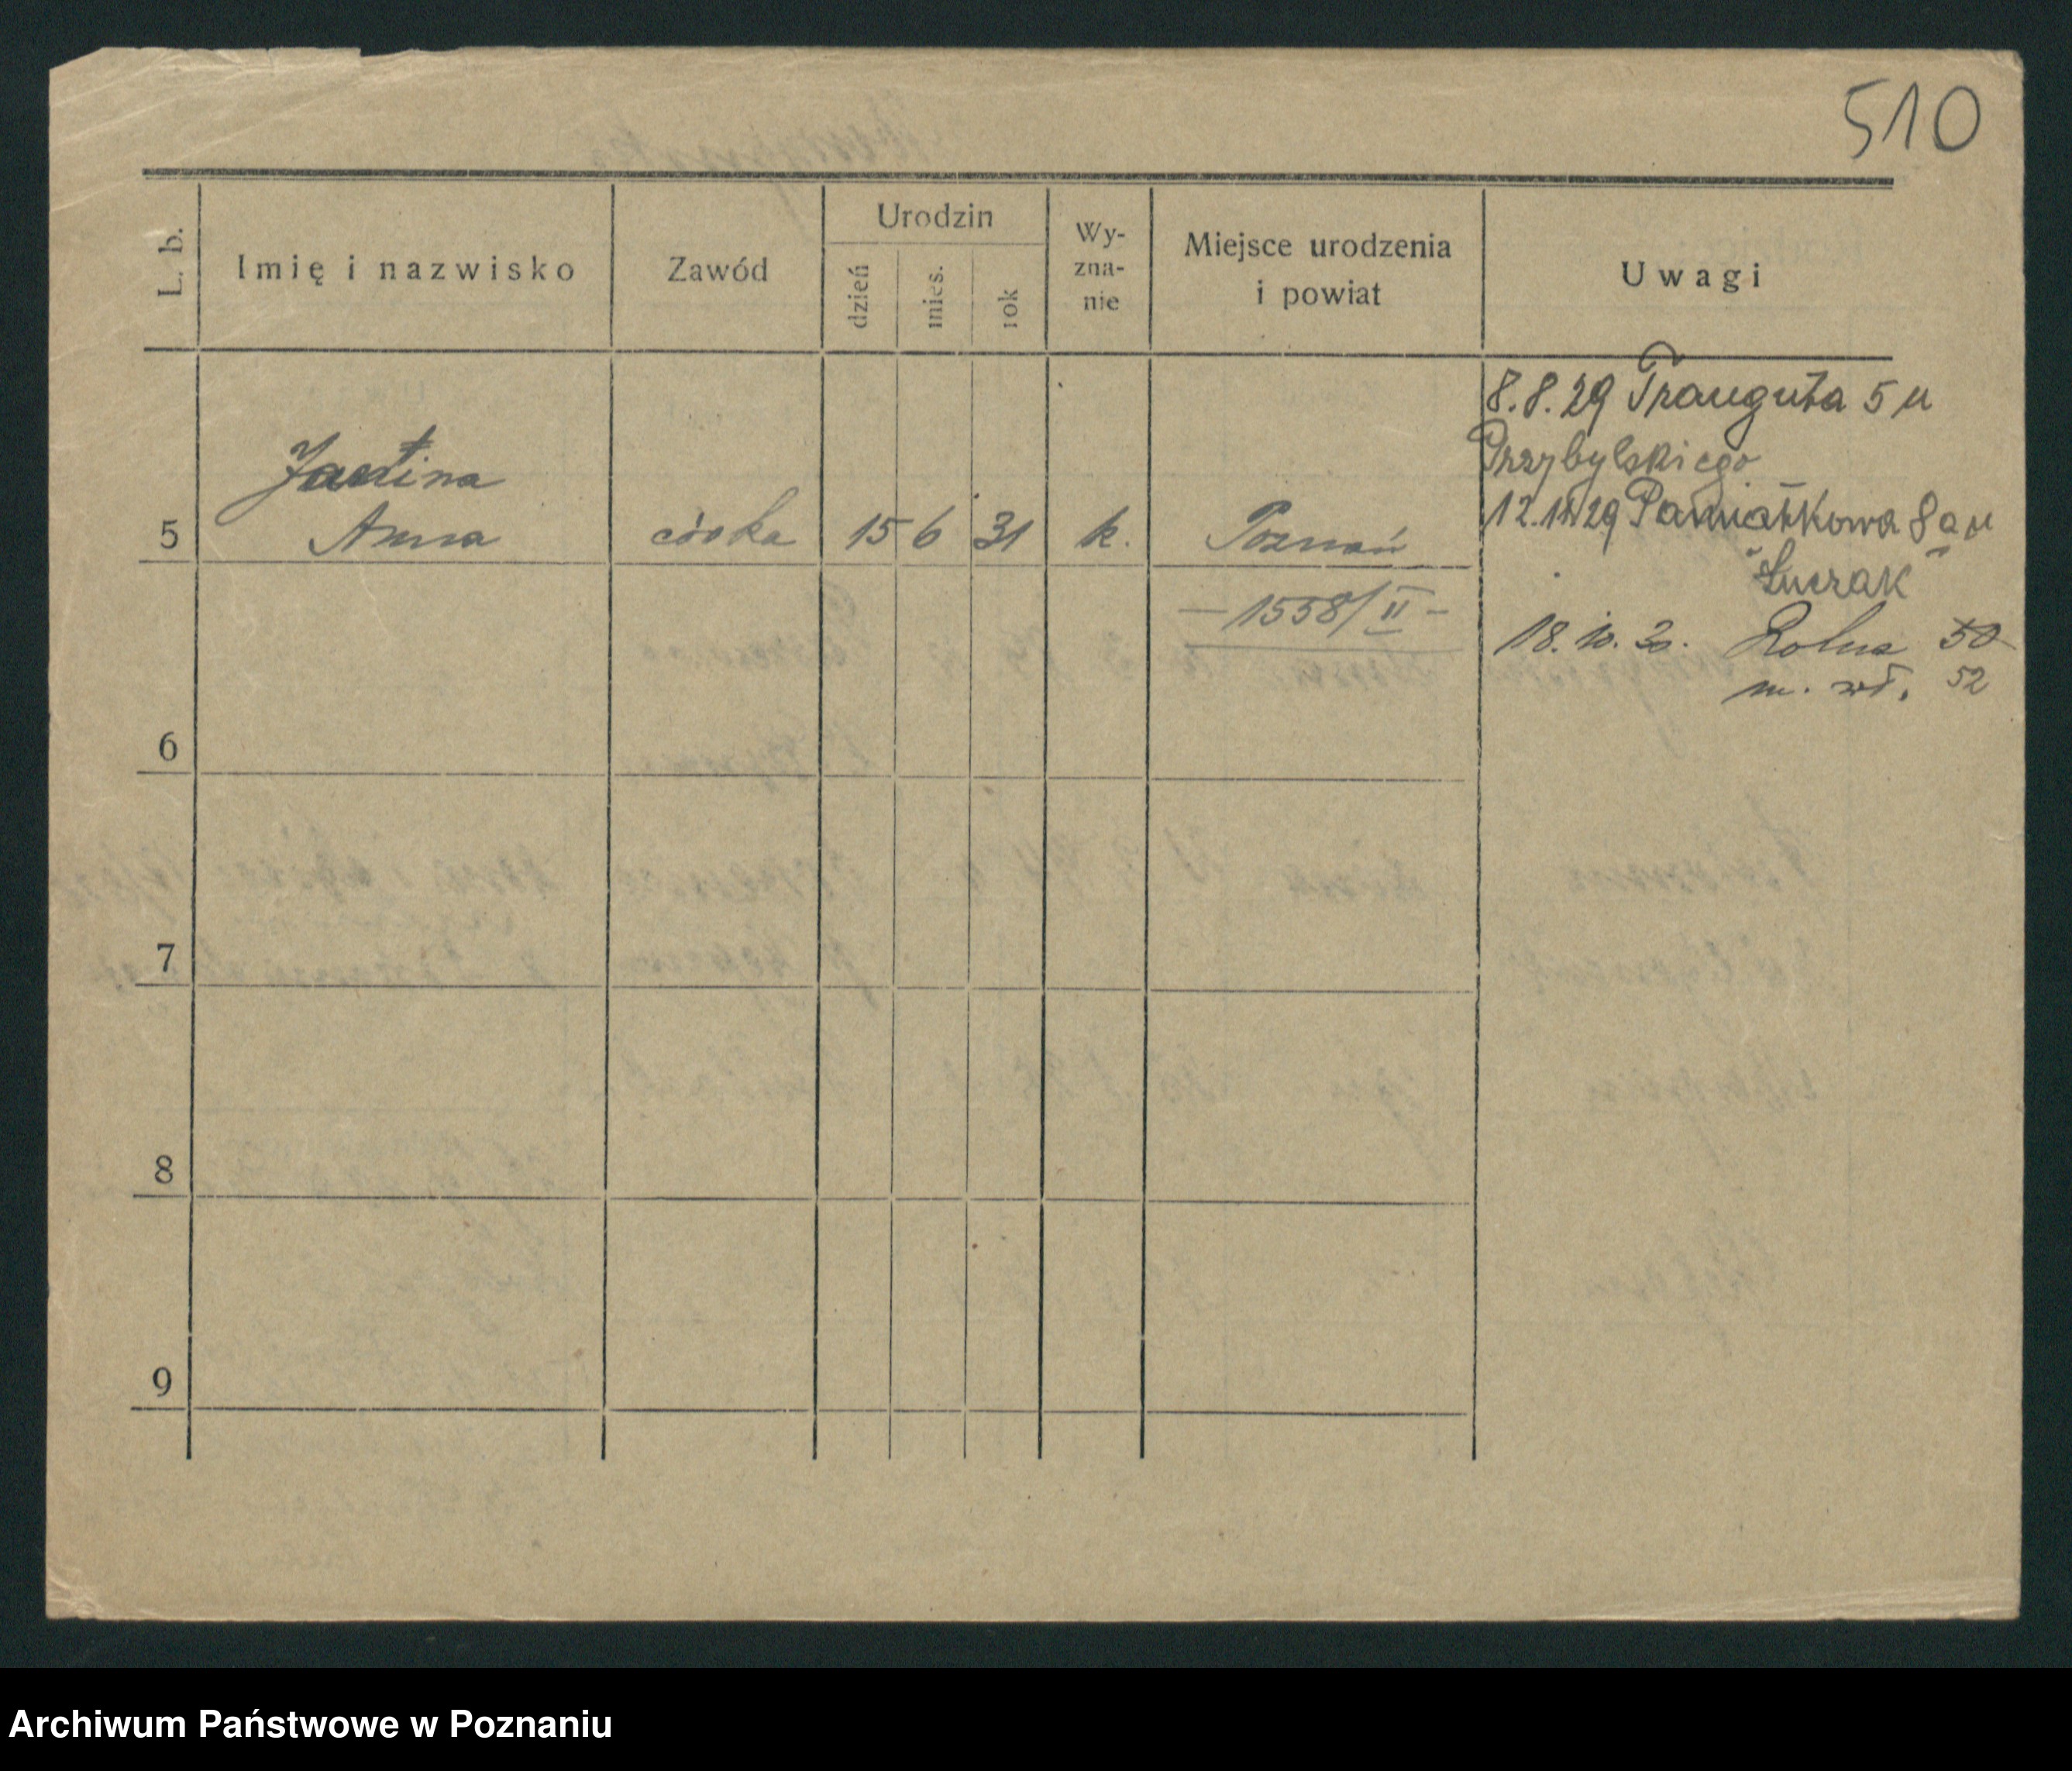 510
L. b.
Imię i nazwisko
Zawód
Urodzin
dzień
mies.
rok
Wy-
zna-
nie
Miejsce urodzenia
i powiat
Uwagi
8.8.29 Trauguta 5 u
Przybylskiego
12.11.29 Pamiątkowa 8a u
"Łuczak"
18.10.30. Rolna 50
m. wł. 52
Anna
5 córka 15 6 31 k. Poznań
— 1558/II —
6
7
8
9
Archiwum Państwowe w Poznaniu